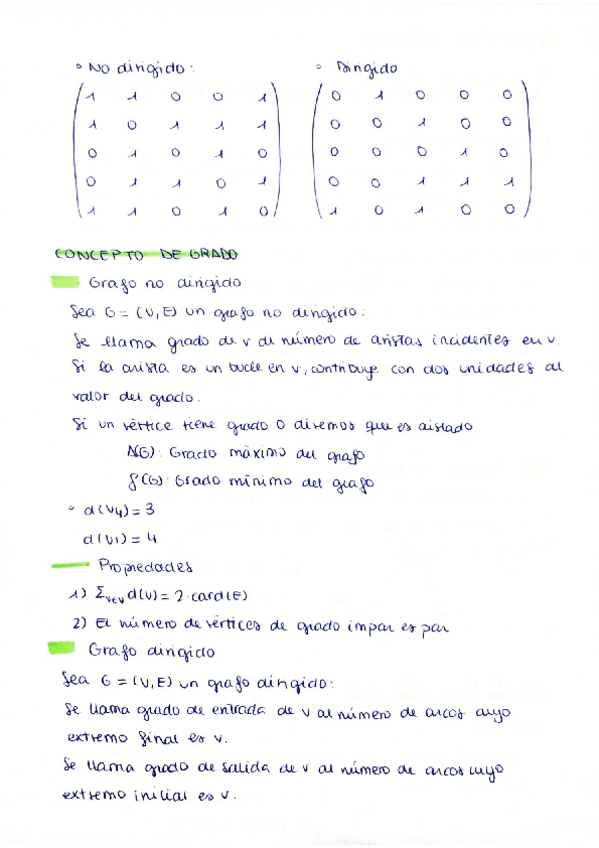 ° No dirigido: ° Dirigido
1 1 0 0 1 0 1 0 0 0
1 0 1 1 1 0 0 1 0 0
0 1 0 1 0 0 0 0 1 0
0 1 1 0 1 0 0 1 1 1
1 1 0 1 0 1 0 1 0 0
CONCEPTO DE GRADO
Grafo no dirigido
Sea G = (V,E) un grafo no dirigido:
Se llama grado de v al número de aristas incidentes en v.
Si la arista es un bucle en v, contribuye con dos unidades al
valor del grado.
Si un vértice tiene grado 0 diremos que es aislado
Δ(G): Grado máximo del grafo
δ(G): Grado mínimo del grafo
° d(v4) = 3
d(v1) = 4
Propiedades
1) Σv∈V d(v) = 2·card(E)
2) El número de vértices de grado impar es par
Grafo dirigido
Sea G = (V,E) un grafo dirigido:
Se llama grado de entrada de v al número de arcos cuyo
extremo final es v.
Se llama grado de salida de v al número de arcos cuyo
extremo inicial es v.